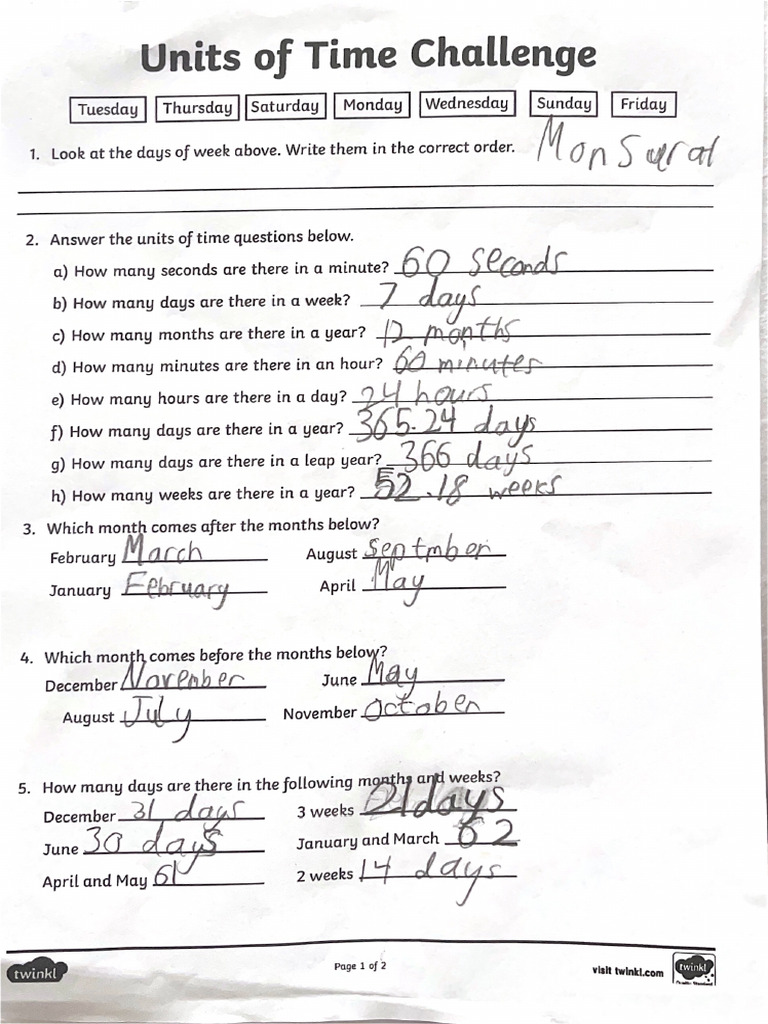 Units of Time Challenge
Tuesday Thursday Saturday Monday Wednesday Sunday Friday
1. Look at the days of week above. Write them in the correct order. Monsurat
2. Answer the units of time questions below.
a) How many seconds are there in a minute? 60 seconds
b) How many days are there in a week? 7 days
c) How many months are there in a year? 12 months
d) How many minutes are there in an hour? 60 minutes
e) How many hours are there in a day? 24 hours
f) How many days are there in a year? 365.24 days
g) How many days are there in a leap year? 366 days
h) How many weeks are there in a year? 52.18 weeks
3. Which month comes after the months below?
February March August Septmber
January February April May
4. Which month comes before the months below?
December November June May
August July November October
5. How many days are there in the following months and weeks?
December 31 days 3 weeks 21 days
June 30 days January and March 62
April and May 61 2 weeks 14 days
twinkl Page 1 of 2 visit twinkl.com twinkl